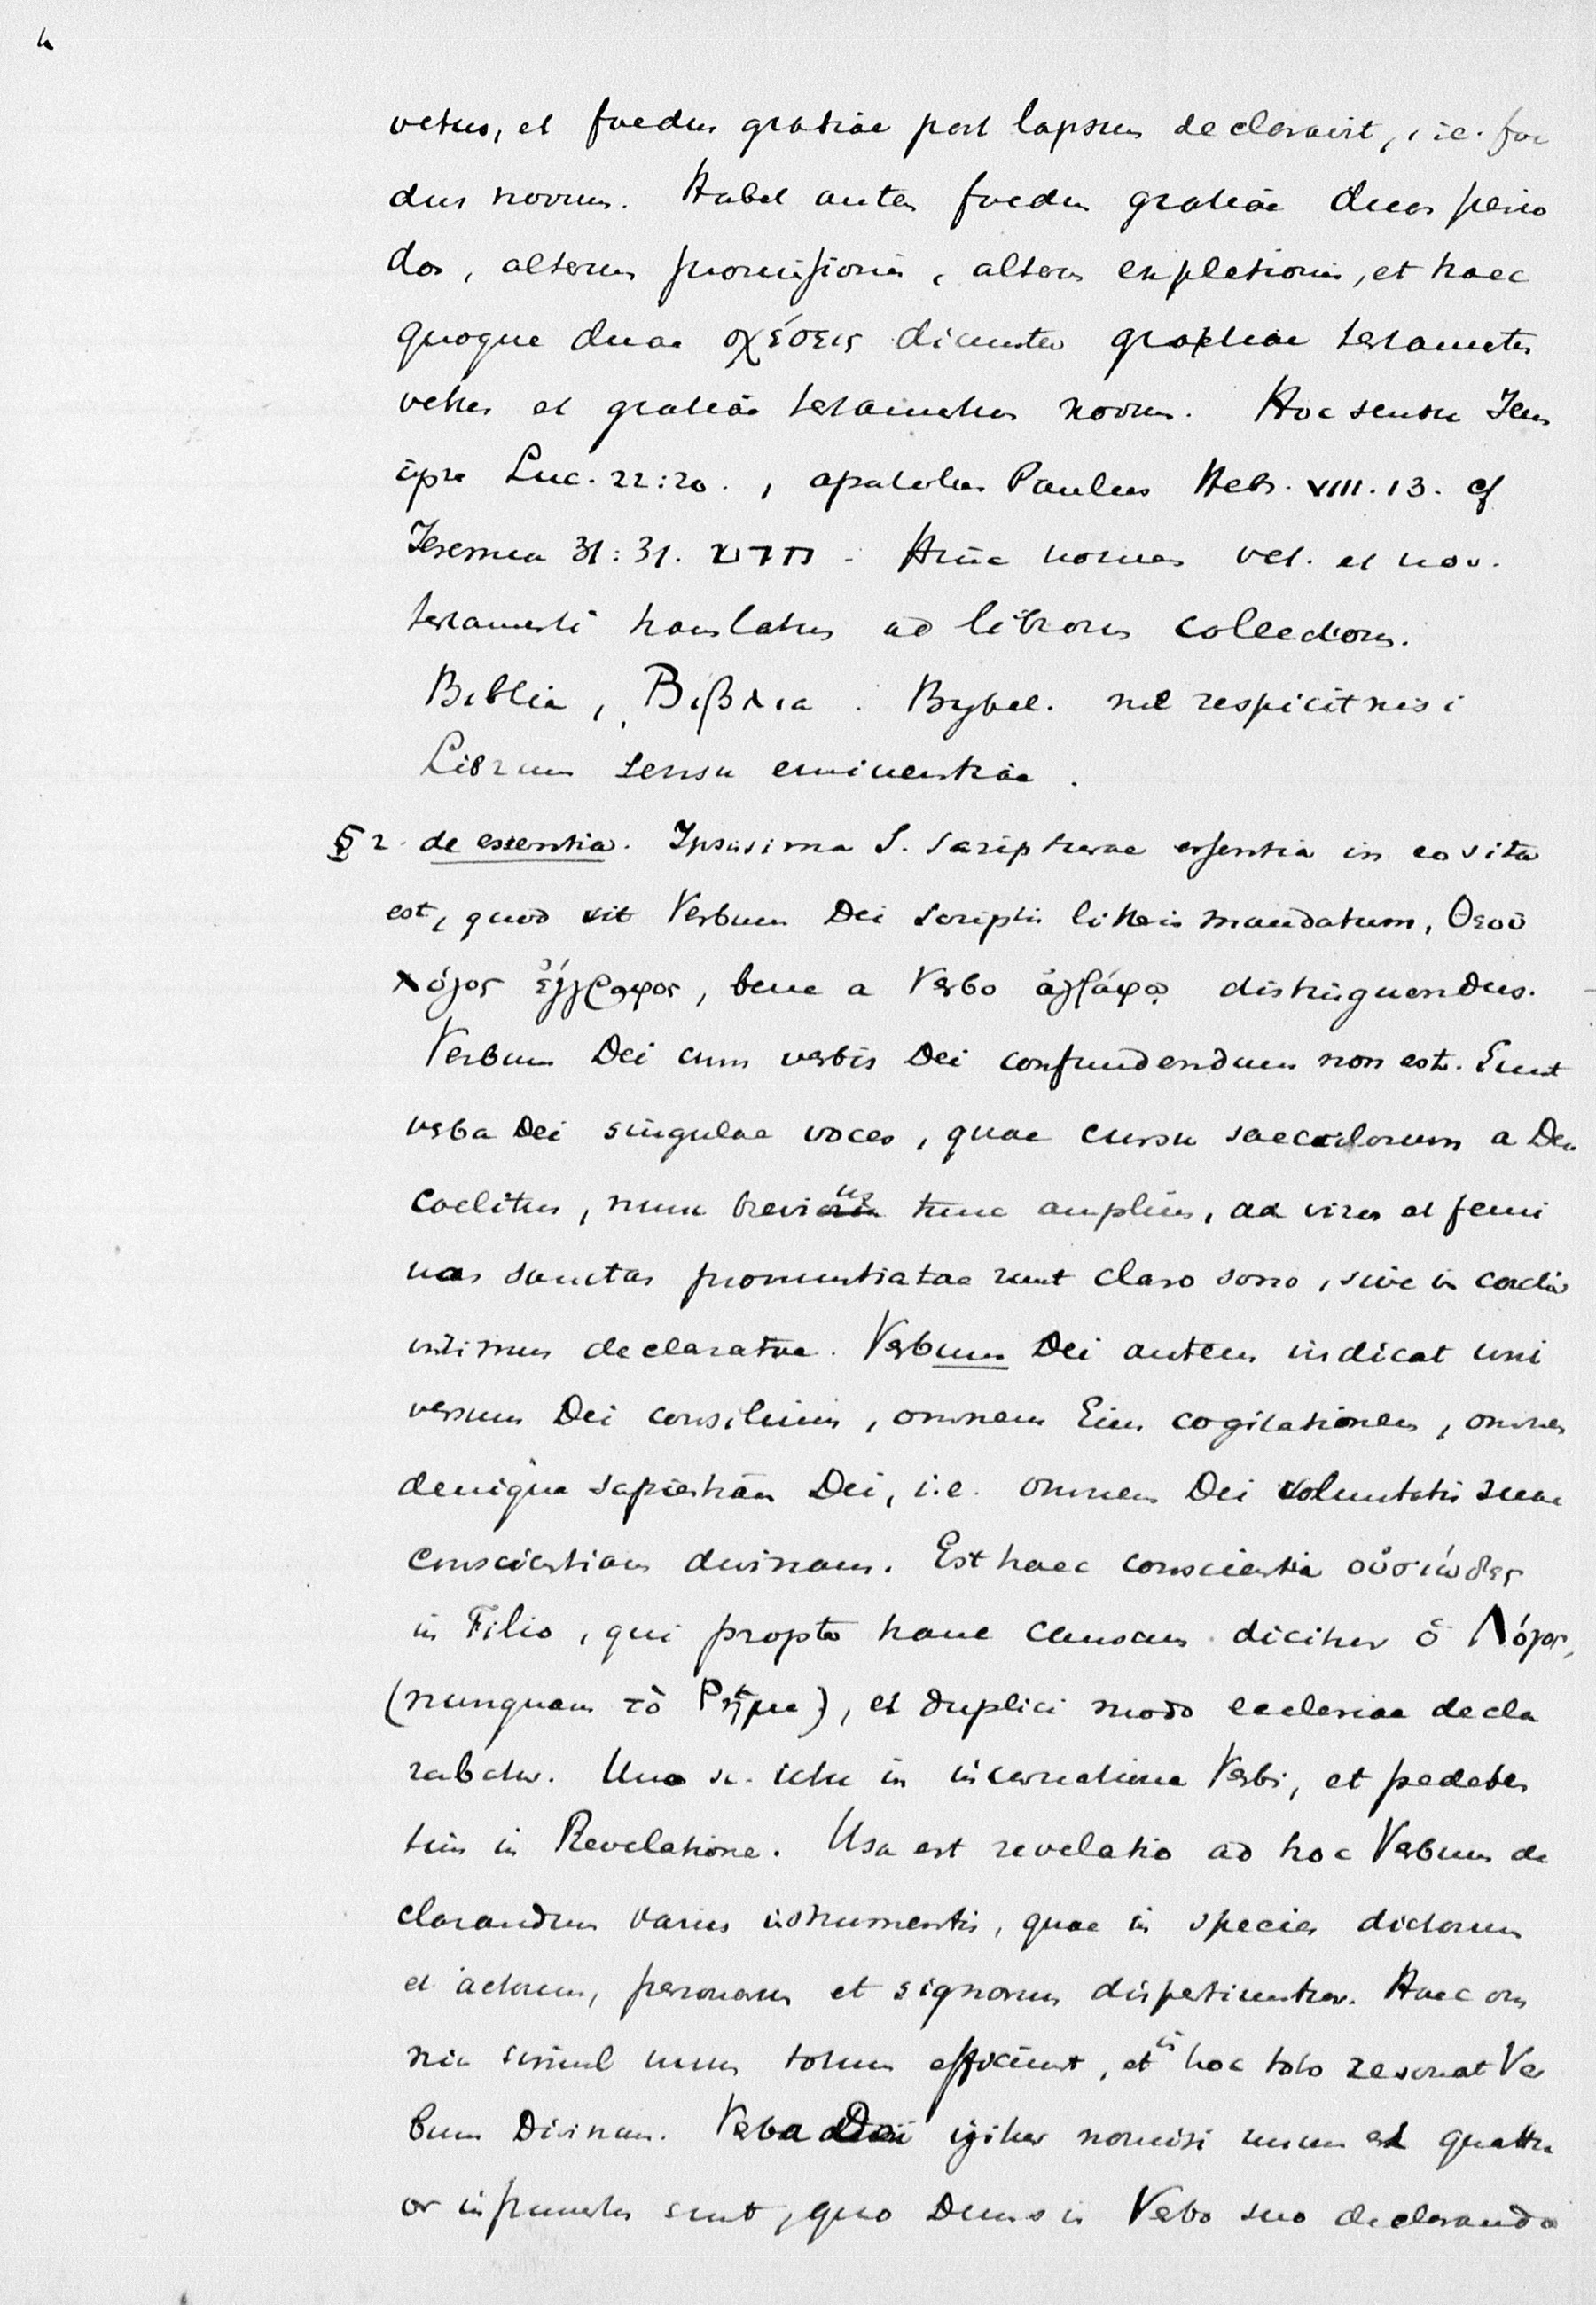 4
vetus, et foedus gratiae post lapsum declaravit, i.e. foe
dus novum. Habet autem foedus gratiae duas perio
dos, alteram promissionis, alteram expletionis, et haec
quoque duae σχέσεις dicuntur gratiae testamentum
vetus et gratiae testamentum novum. Hoc sensu Iesus
ipse Luc. 22:20., apostolus Paulus Hebr. VIII.13. cf
Ieremia 31:31. חדש. Hinc nomen vet. et nov.
testamenti translatum ad librorum collectionem.
Biblia, Βιβλια. Bybel. nil respicit nisi
Librum sensu eminentiae.
§ 2. de essentia. Ipsissima S. Scripturae essentia in eo sita
est, quod sit Verbum Dei scriptis litteris mandatum, Θεοῦ
λόγος ἔγγραφος, bene a Verbo ἀγράφῳ distinguendus.
Verbum Dei cum verbis Dei confundendum non est. Sunt
verba Dei singulae voces, quae cursu saeculorum a Deo
coelitus, nunc brevius tunc amplius, ad viros et femi
nas sanctas pronuntiatae sunt claro sono, sive in cordis
intimis declaratae. Verbum Dei autem indicat uni
versum Dei consilium, omnem Eius cogitationem, omnem
denique sapientiam Dei, i.e. omnem Dei voluntatis suae
conscientiam divinam. Est haec conscientia οὐσιώδης
in Filio, qui propter hanc causam dicitur ὁ Λόγος,
(nunquam τὸ Ρῆμα), et duplici modo ecclesiae decla
rabatur. Uno sc. ictu in incarnatione Verbi, et pedeten
tim in Revelatione. Usa est revelatio ad hoc Verbum de
clarandum variis instrumentis, quae in species dictorum
et actorum, personarum et signorum dispertiuntur. Haec om
nia simul unum totum efficiunt, et in hoc toto resonat Ver
bum Divinum. Verba Dei igitur nonnisi unum ex quattu
or instrumentis sunt, quo Deus in Verbo suo declarando